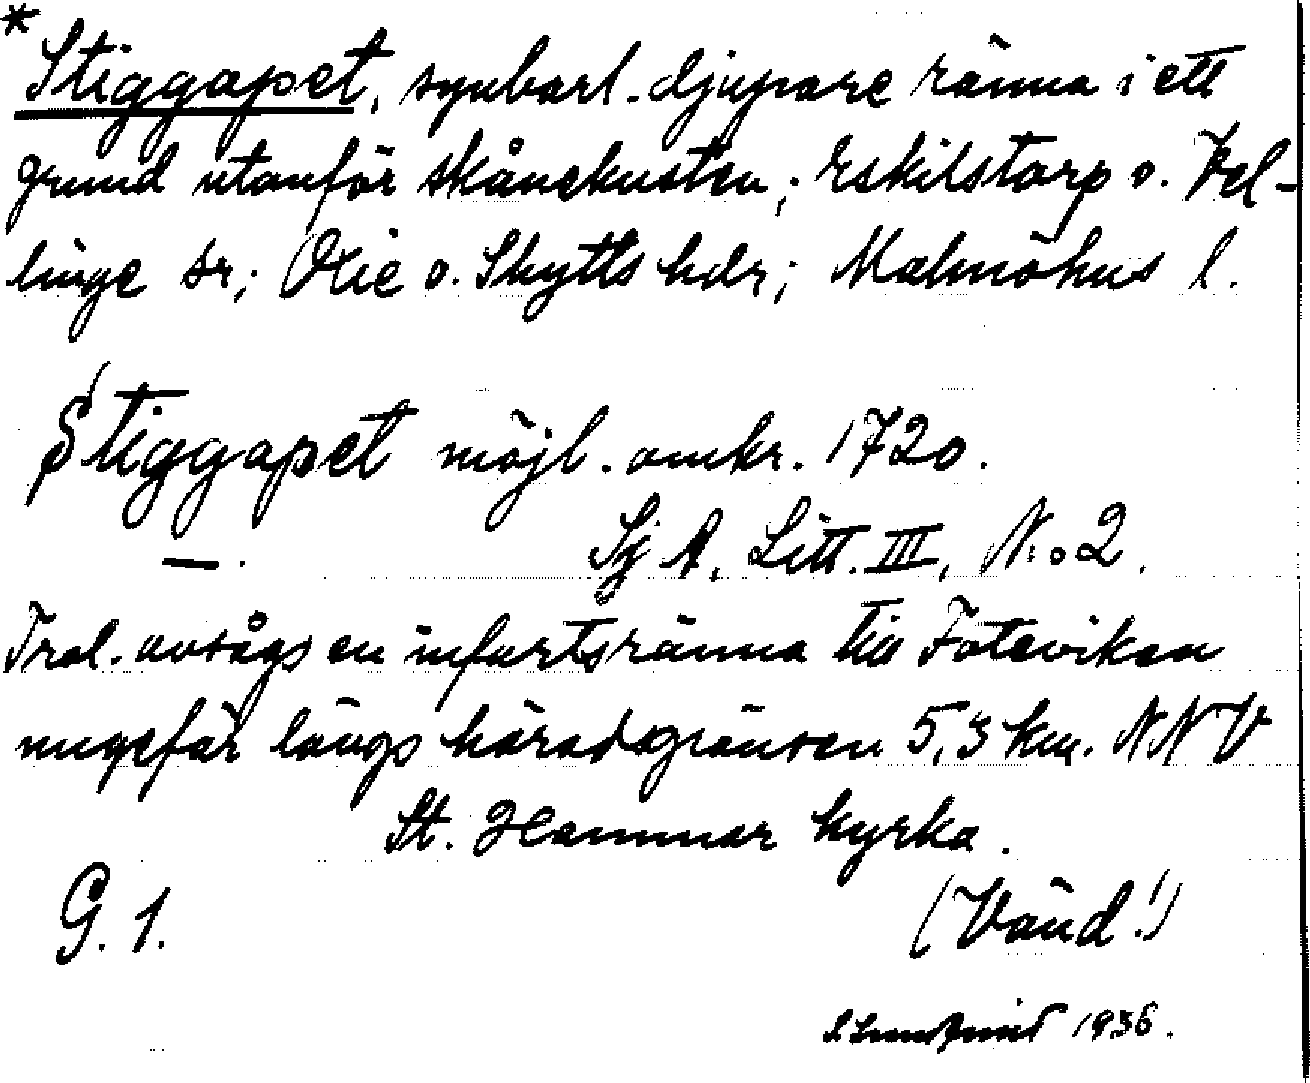 * Stiggapet, synbarl. djupare ränna i ett
grund utanför skånekusten; Eskilstorp o. Vel-
linge sr; Oxie o. Skytts hdr; Malmöhus l.
Stiggapet möjl. omkr. 1720.
— . Sj A, Litt. III, N:o 2.
Trol. avsågs en infartsränna till Foteviken
ungefär längs häradsgränsen 5,3 km. NNV
St. Hammar kyrka.
G. 1. (Vänd!)
1936.